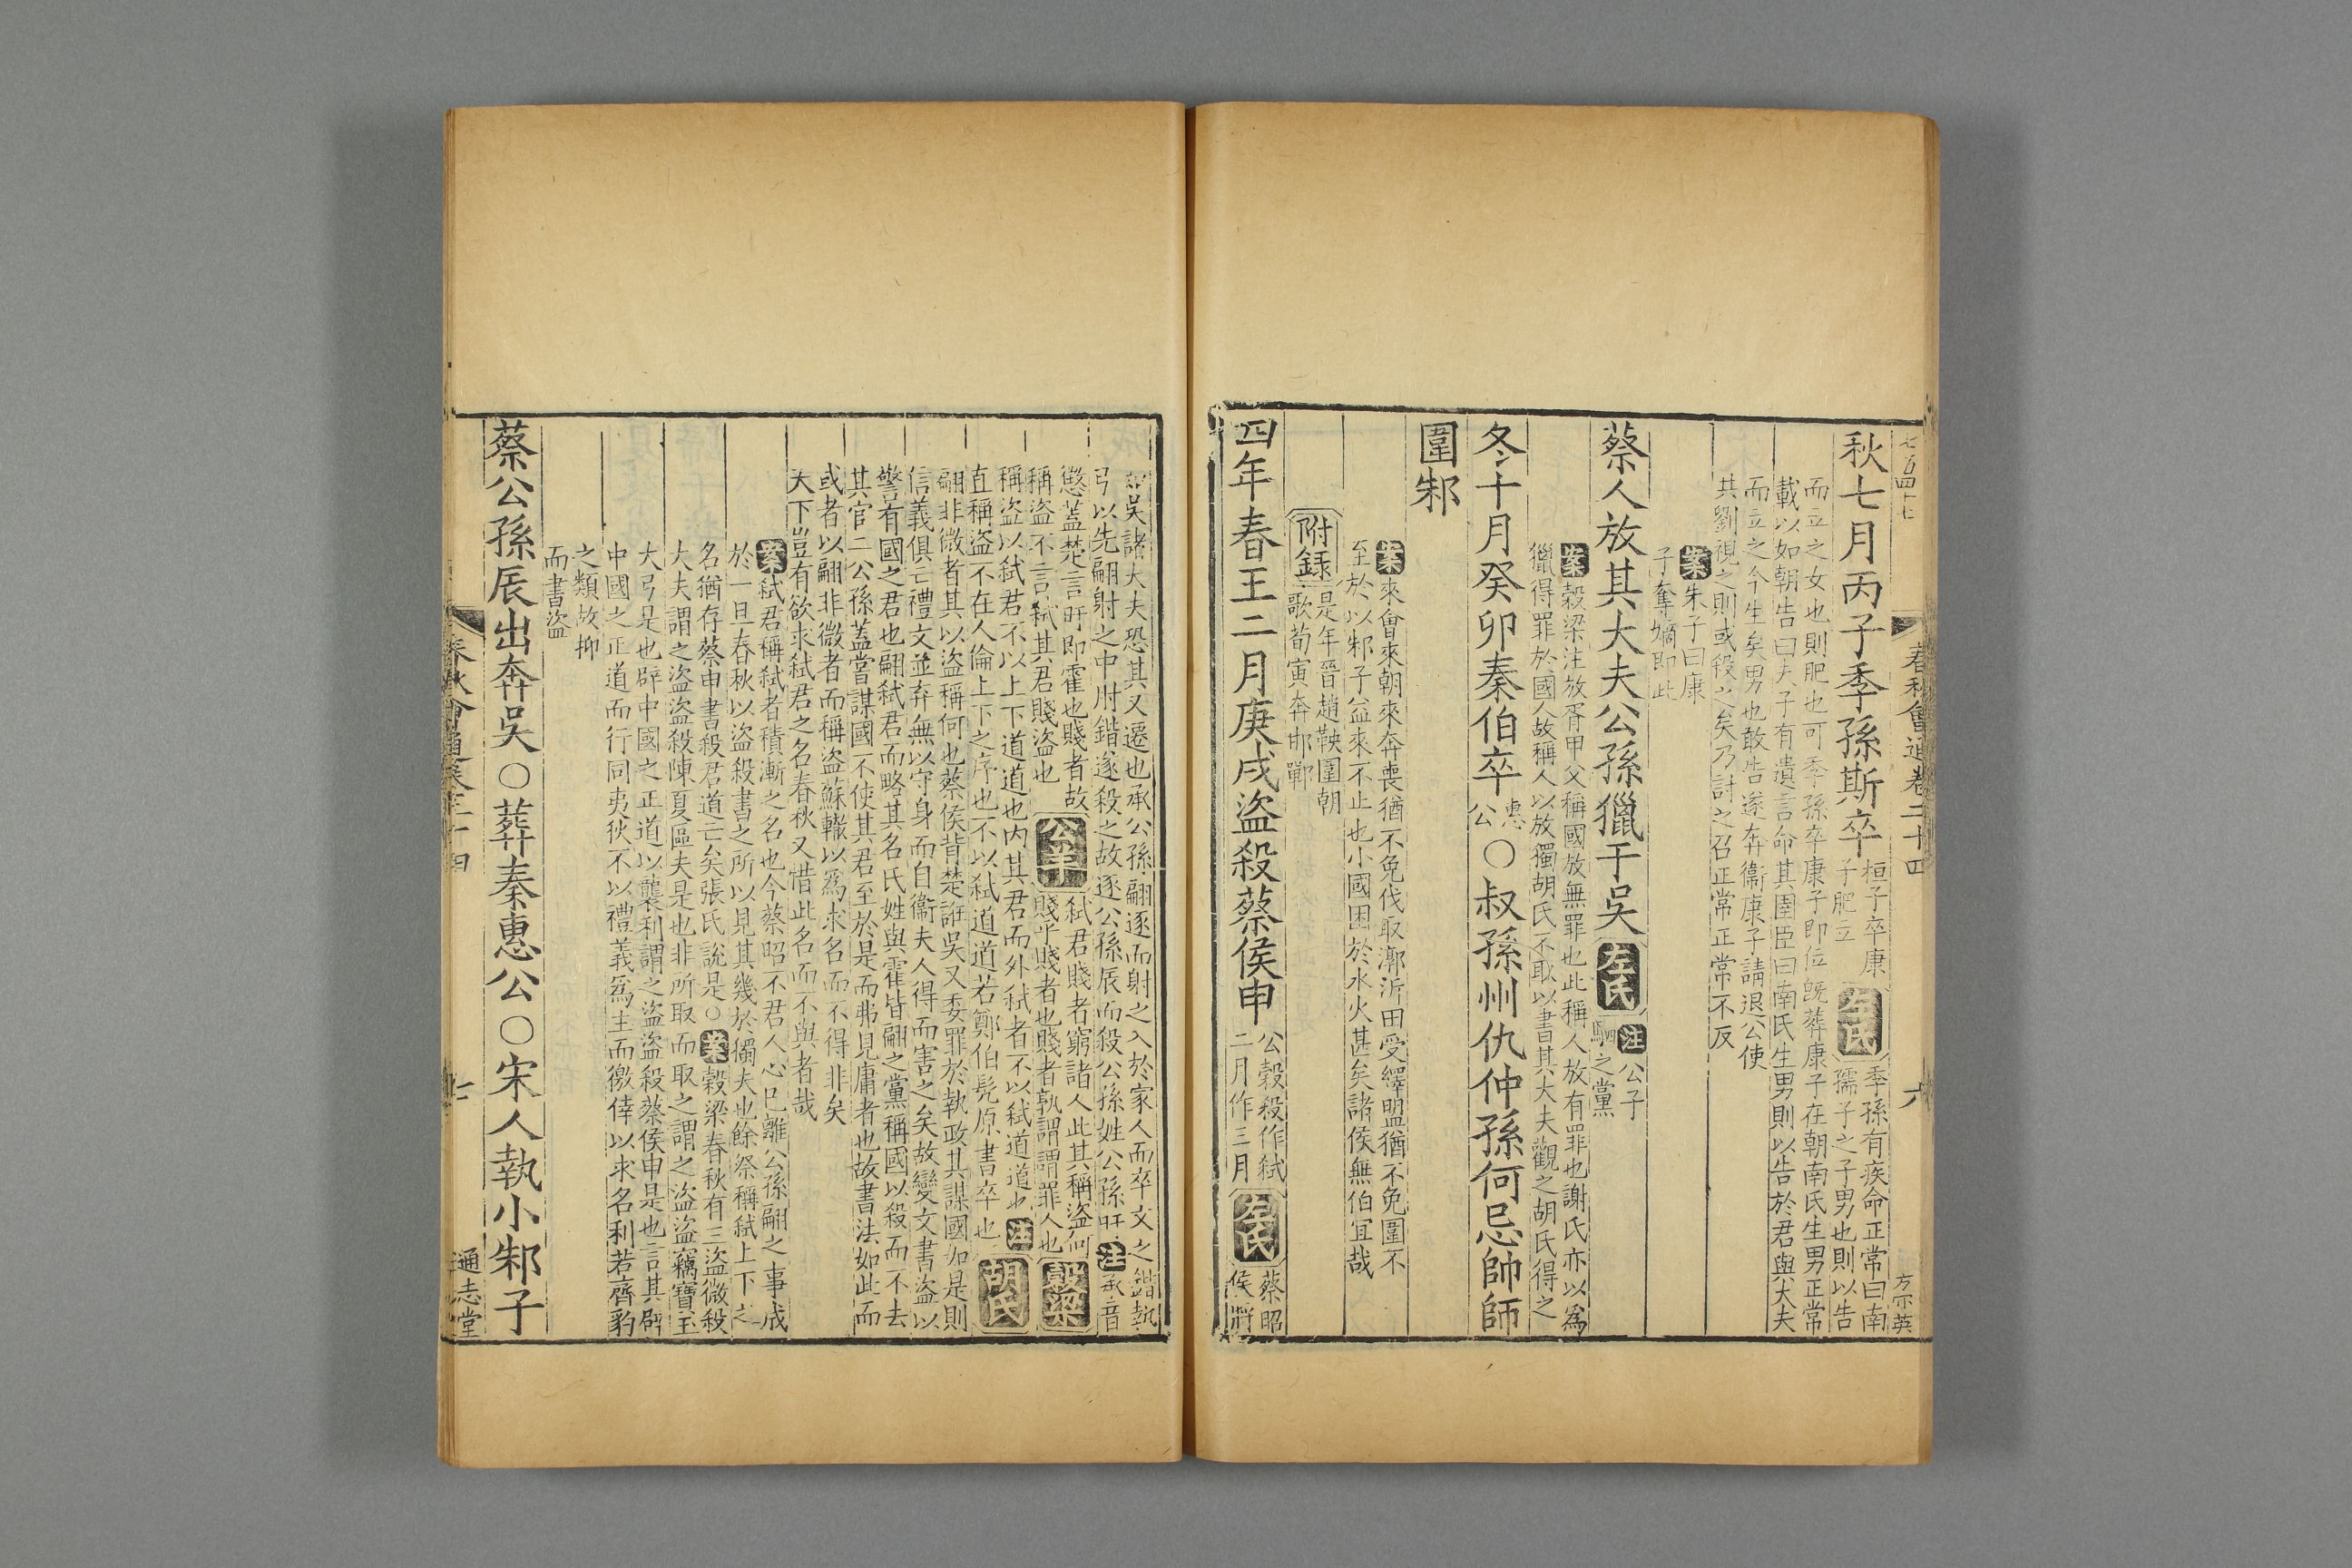 七百四十七
春秋會通卷二十四
六
方示英
秋七月丙子季孫斯卒
桓子卒康
子肥立
左氏
季孫有疾命正常曰南
孺子之子男也則以告
而立之女也則肥也可季孫卒康子即位旣葬康子在朝南氏生男正常
載以如朝告曰夫子有遺言命其圉臣曰南氏生男則以告於君與大夫
而立之今生矣男也敢告遂奔衞康子請退公使
共劉視之則或殺之矣乃討之召正常正常不反
案朱子曰康
子奪嫡卽此
蔡人放其大夫公孫獵于吳
左氏
注公子
駟之黨
案榖梁注放胥甲父稱國放無罪也此稱人放有罪也謝氏亦以爲
獵得罪於國人故稱人以放獨胡氏不取以書其大夫觀之胡氏得之
冬十月癸卯秦伯卒
惠
公
○叔孫州仇仲孫何忌帥師
圍邾
案來會來朝來奔喪猶不免伐取漷沂田受繹盟猶不免圍不
至於以邾子益來不止也小國困於水火甚矣諸侯無伯宜哉
附録
是年晉趙鞅圍朝
歌荀寅奔邯鄲
四年春王二月庚戌盜殺蔡侯申
公榖殺作弑
二月作三月
左氏
蔡昭
侯將
如吳諸大夫恐其又遷也承公孫翩逐而射之入於家人而卒文之鍇執
弓以先翩射之中肘鍇遂殺之故逐公孫辰而殺公孫姓公孫盱注承音
懲蓋楚言盱卽霍也賤者故
稱盜不言弑其君賤盜也
公羊
弑君賤者窮諸人此其稱盜何
賤乎賤者也賤者孰謂謂罪人也
榖梁
稱盜以弑君不以上下道道也内其君而外弑者不以弑道道也注
直稱盜不在人倫上下之序也不以弑道道若鄭伯髠原書卒也
胡氏
翩非微者其以盜稱何也蔡侯背楚誑吳又委罪於執政其謀國如是則
信義俱亡禮文並弃無以守身而自衞夫人得而害之矣故變文書盜以
警有國之君也翩弑君而略其名氏姓與霍皆翩之黨稱國以殺而不去
其官二公孫蓋當謀國不使其君至於是而弗見庸者也故書法如此而
或者以翩非微者而稱盜蘇轍以爲求名而不得非矣
天下豈有欲求弑君之名春秋又惜此名而不與者哉
案弑君稱弑者積漸之名也今蔡昭不君人心已離公孫翩之事成
於一旦春秋以盜殺書之所以見其幾於獨夫也餘祭稱弑上下之
名猶存蔡申書殺君道亡矣張氏說是○案榖梁春秋有三盜微殺
大夫謂之盜盜殺陳夏區夫是也非所取而取之謂之盜盜竊寶玉
大弓是也辟中國之正道以襲利謂之盜盜殺蔡侯申是也言其辟
中國之正道而行同夷狄不以禮義爲主而徼倖以求名利若齊豹
之類故抑
而書盜
蔡公孫辰出奔吳○葬秦惠公○宋人執小邾子
春秋會通卷二十四
七
通志堂